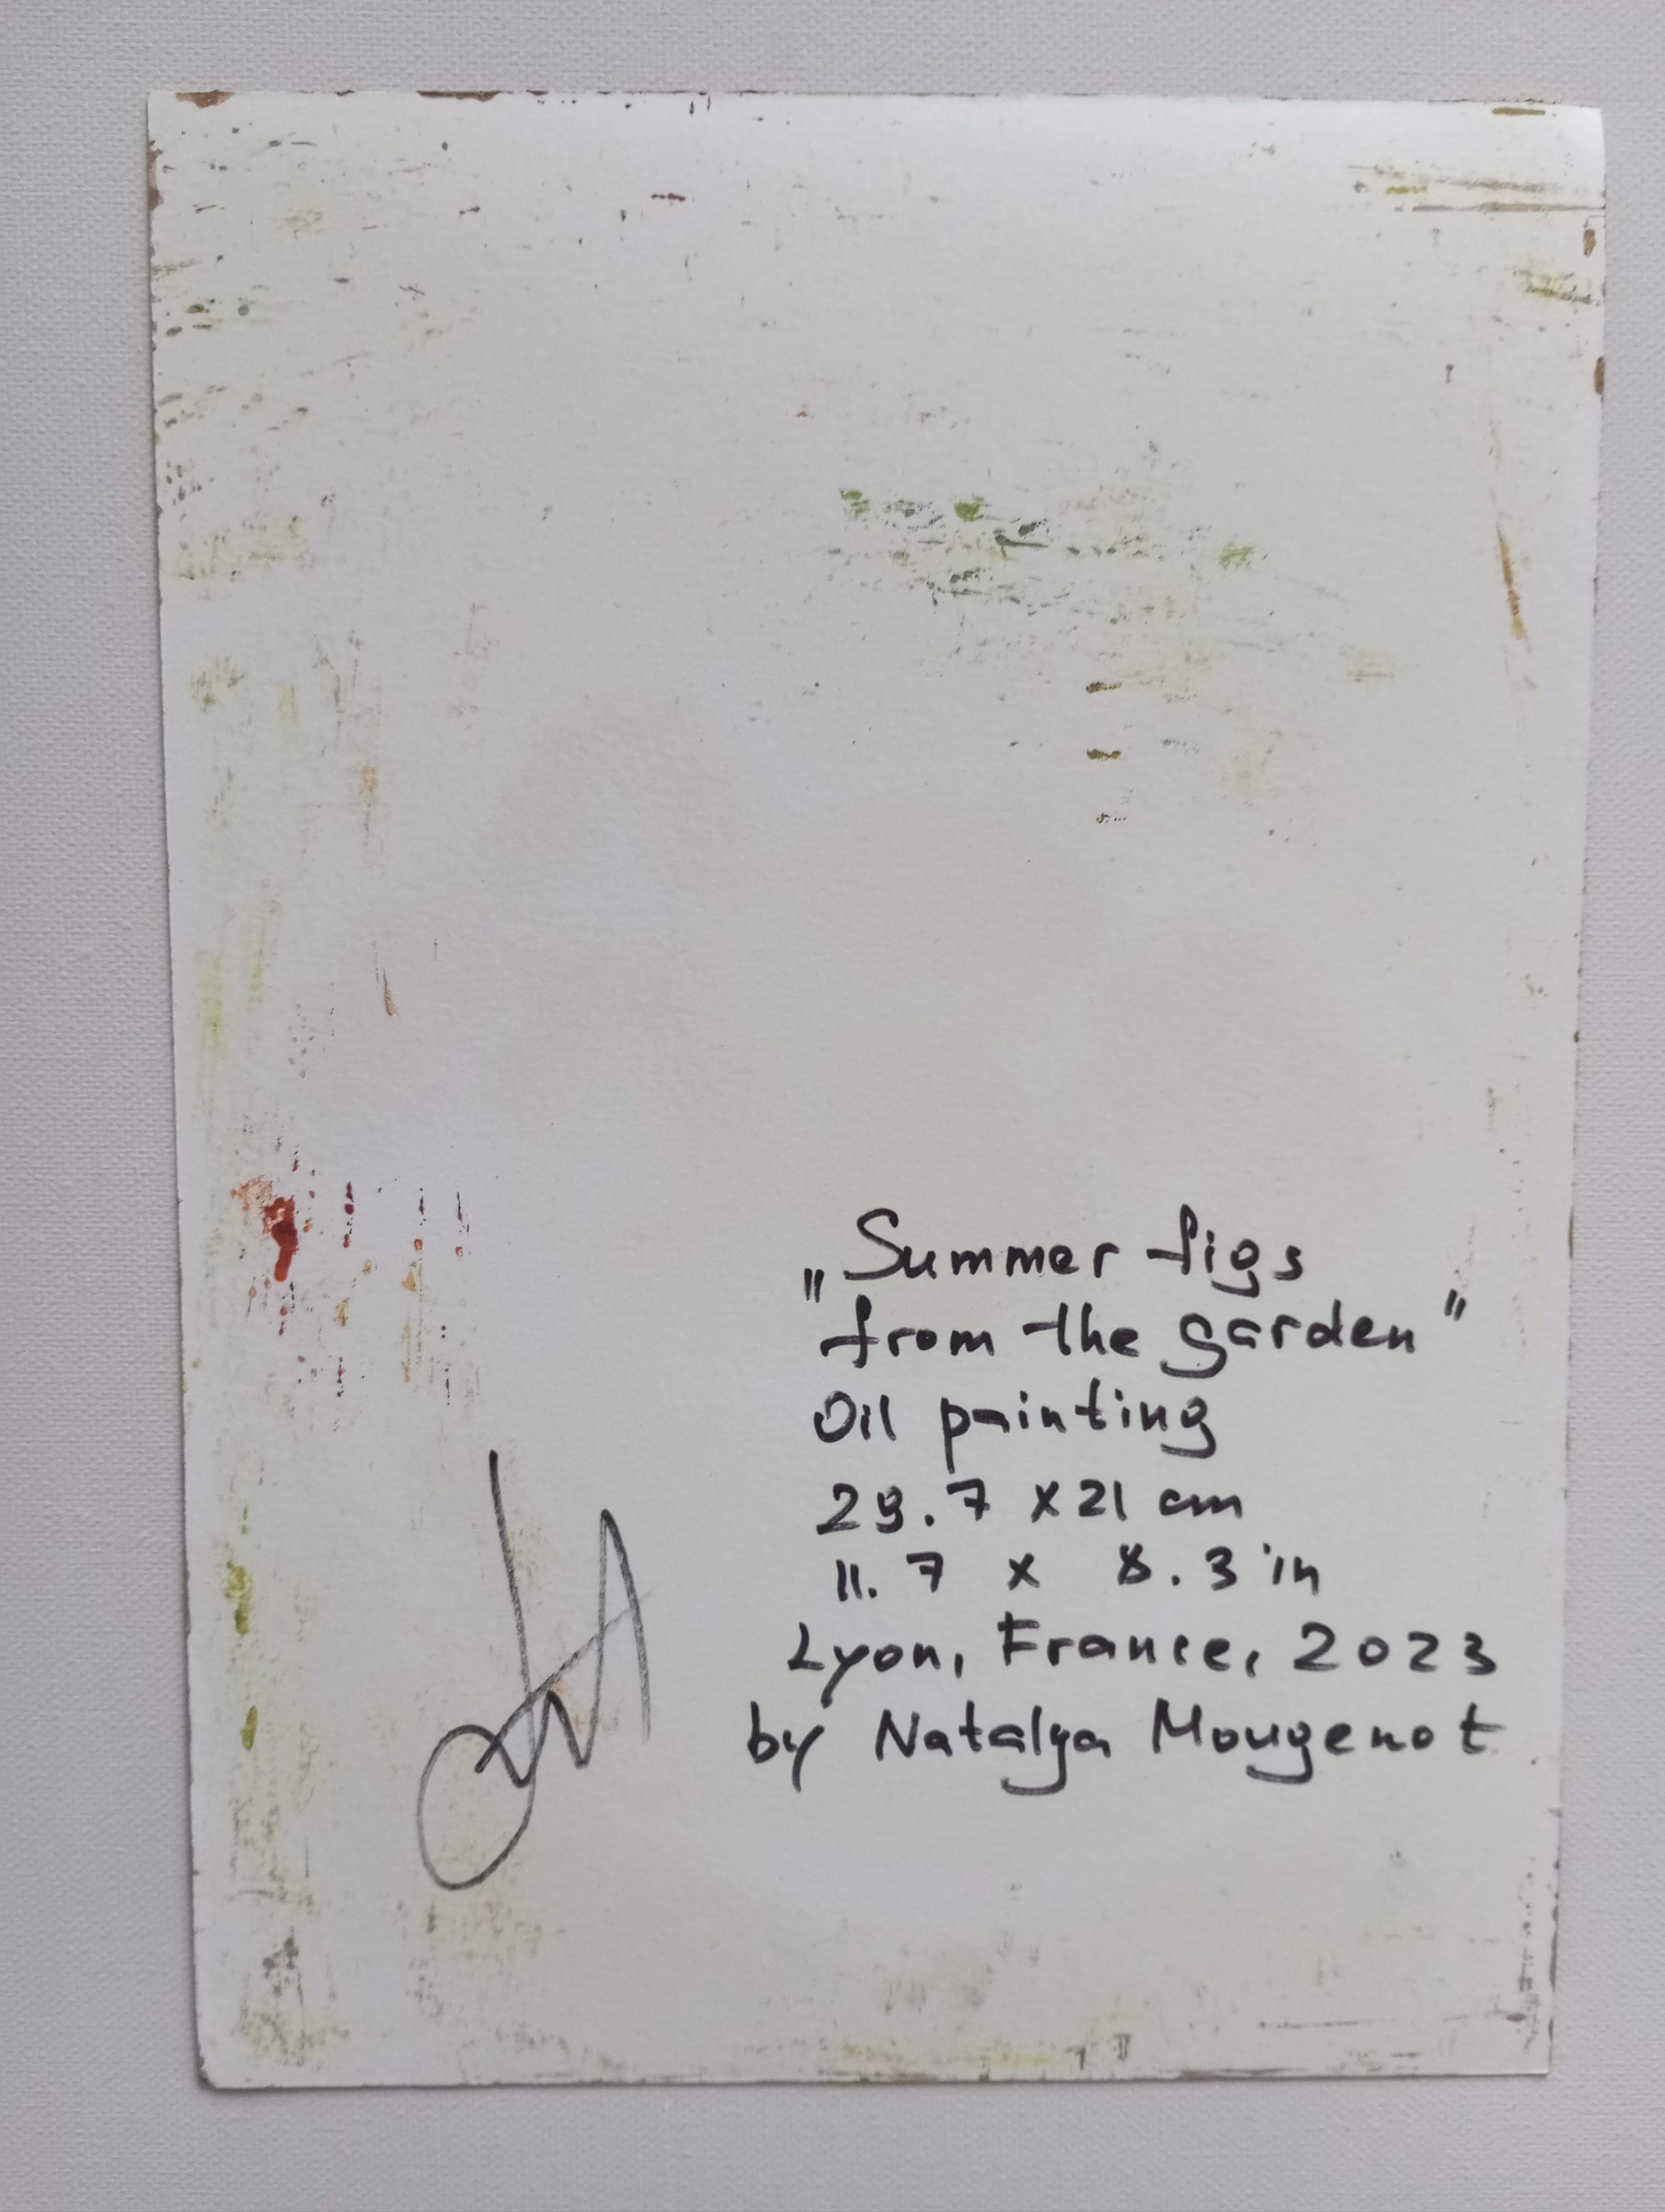 „Summer figs
from the garden"
Oil painting
29.7 x 21 cm
11.7 x 8.3 in
Lyon, France, 2023
by Natalya Mougenot